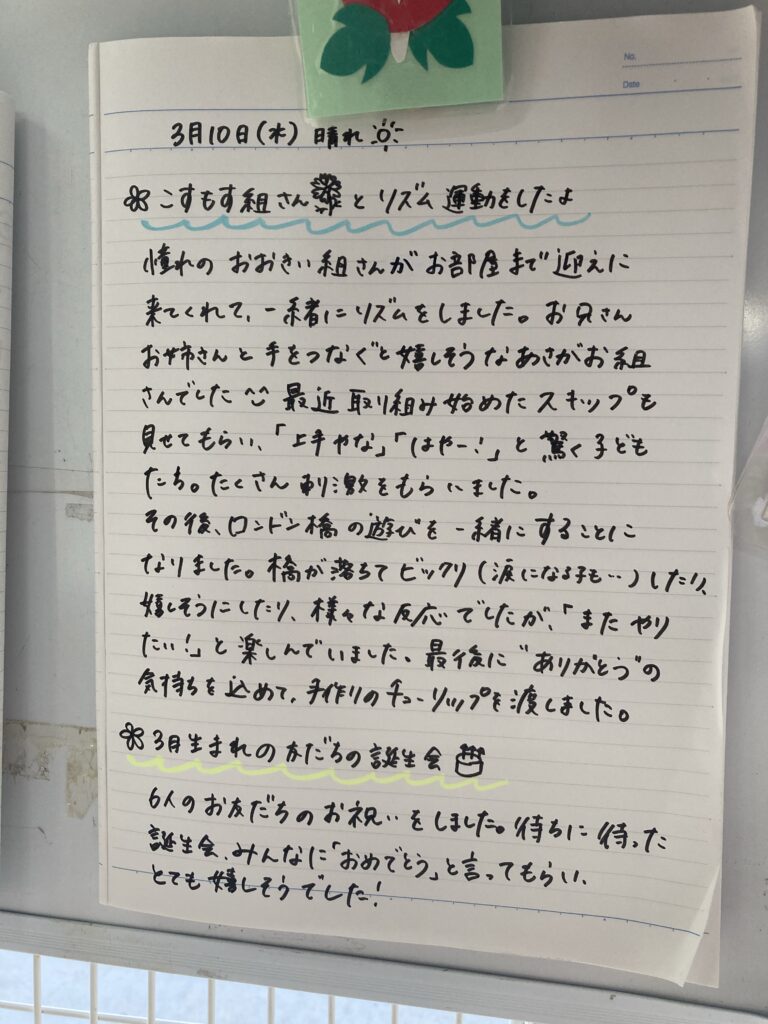 No.
Date
3月10日(水) 晴れ
こすもす組さんとリズム運動をしたよ
憧れの おおきい組さんが お部屋まで 迎えに
来てくれて、一緒にリズムをしました。お兄さん
お姉さんと手をつなぐと嬉しそうなあさがお組
さんでした 最近 取り組み始めた スキップも
見せてもらい、「上手やな」「はやー!」と 驚く子ども
たち。たくさん刺激をもらいました。
その後、ロンドン橋の遊びも一緒にすることに
なりました。橋が落ちて ビックリ(涙になる子も…)したり、
嬉しそうにしたり、様々な反応でしたが、「また やり
たい!」と楽しんでいました。最後に"ありがとう"の
気持ちを込めて、手作りのチューリップを渡しました。
3月生まれのお友だちの誕生会
6人のお友だちのお祝いをしました。待ちに待った
誕生会、みんなに「おめでとう」と言ってもらい、
とても嬉しそうでした!